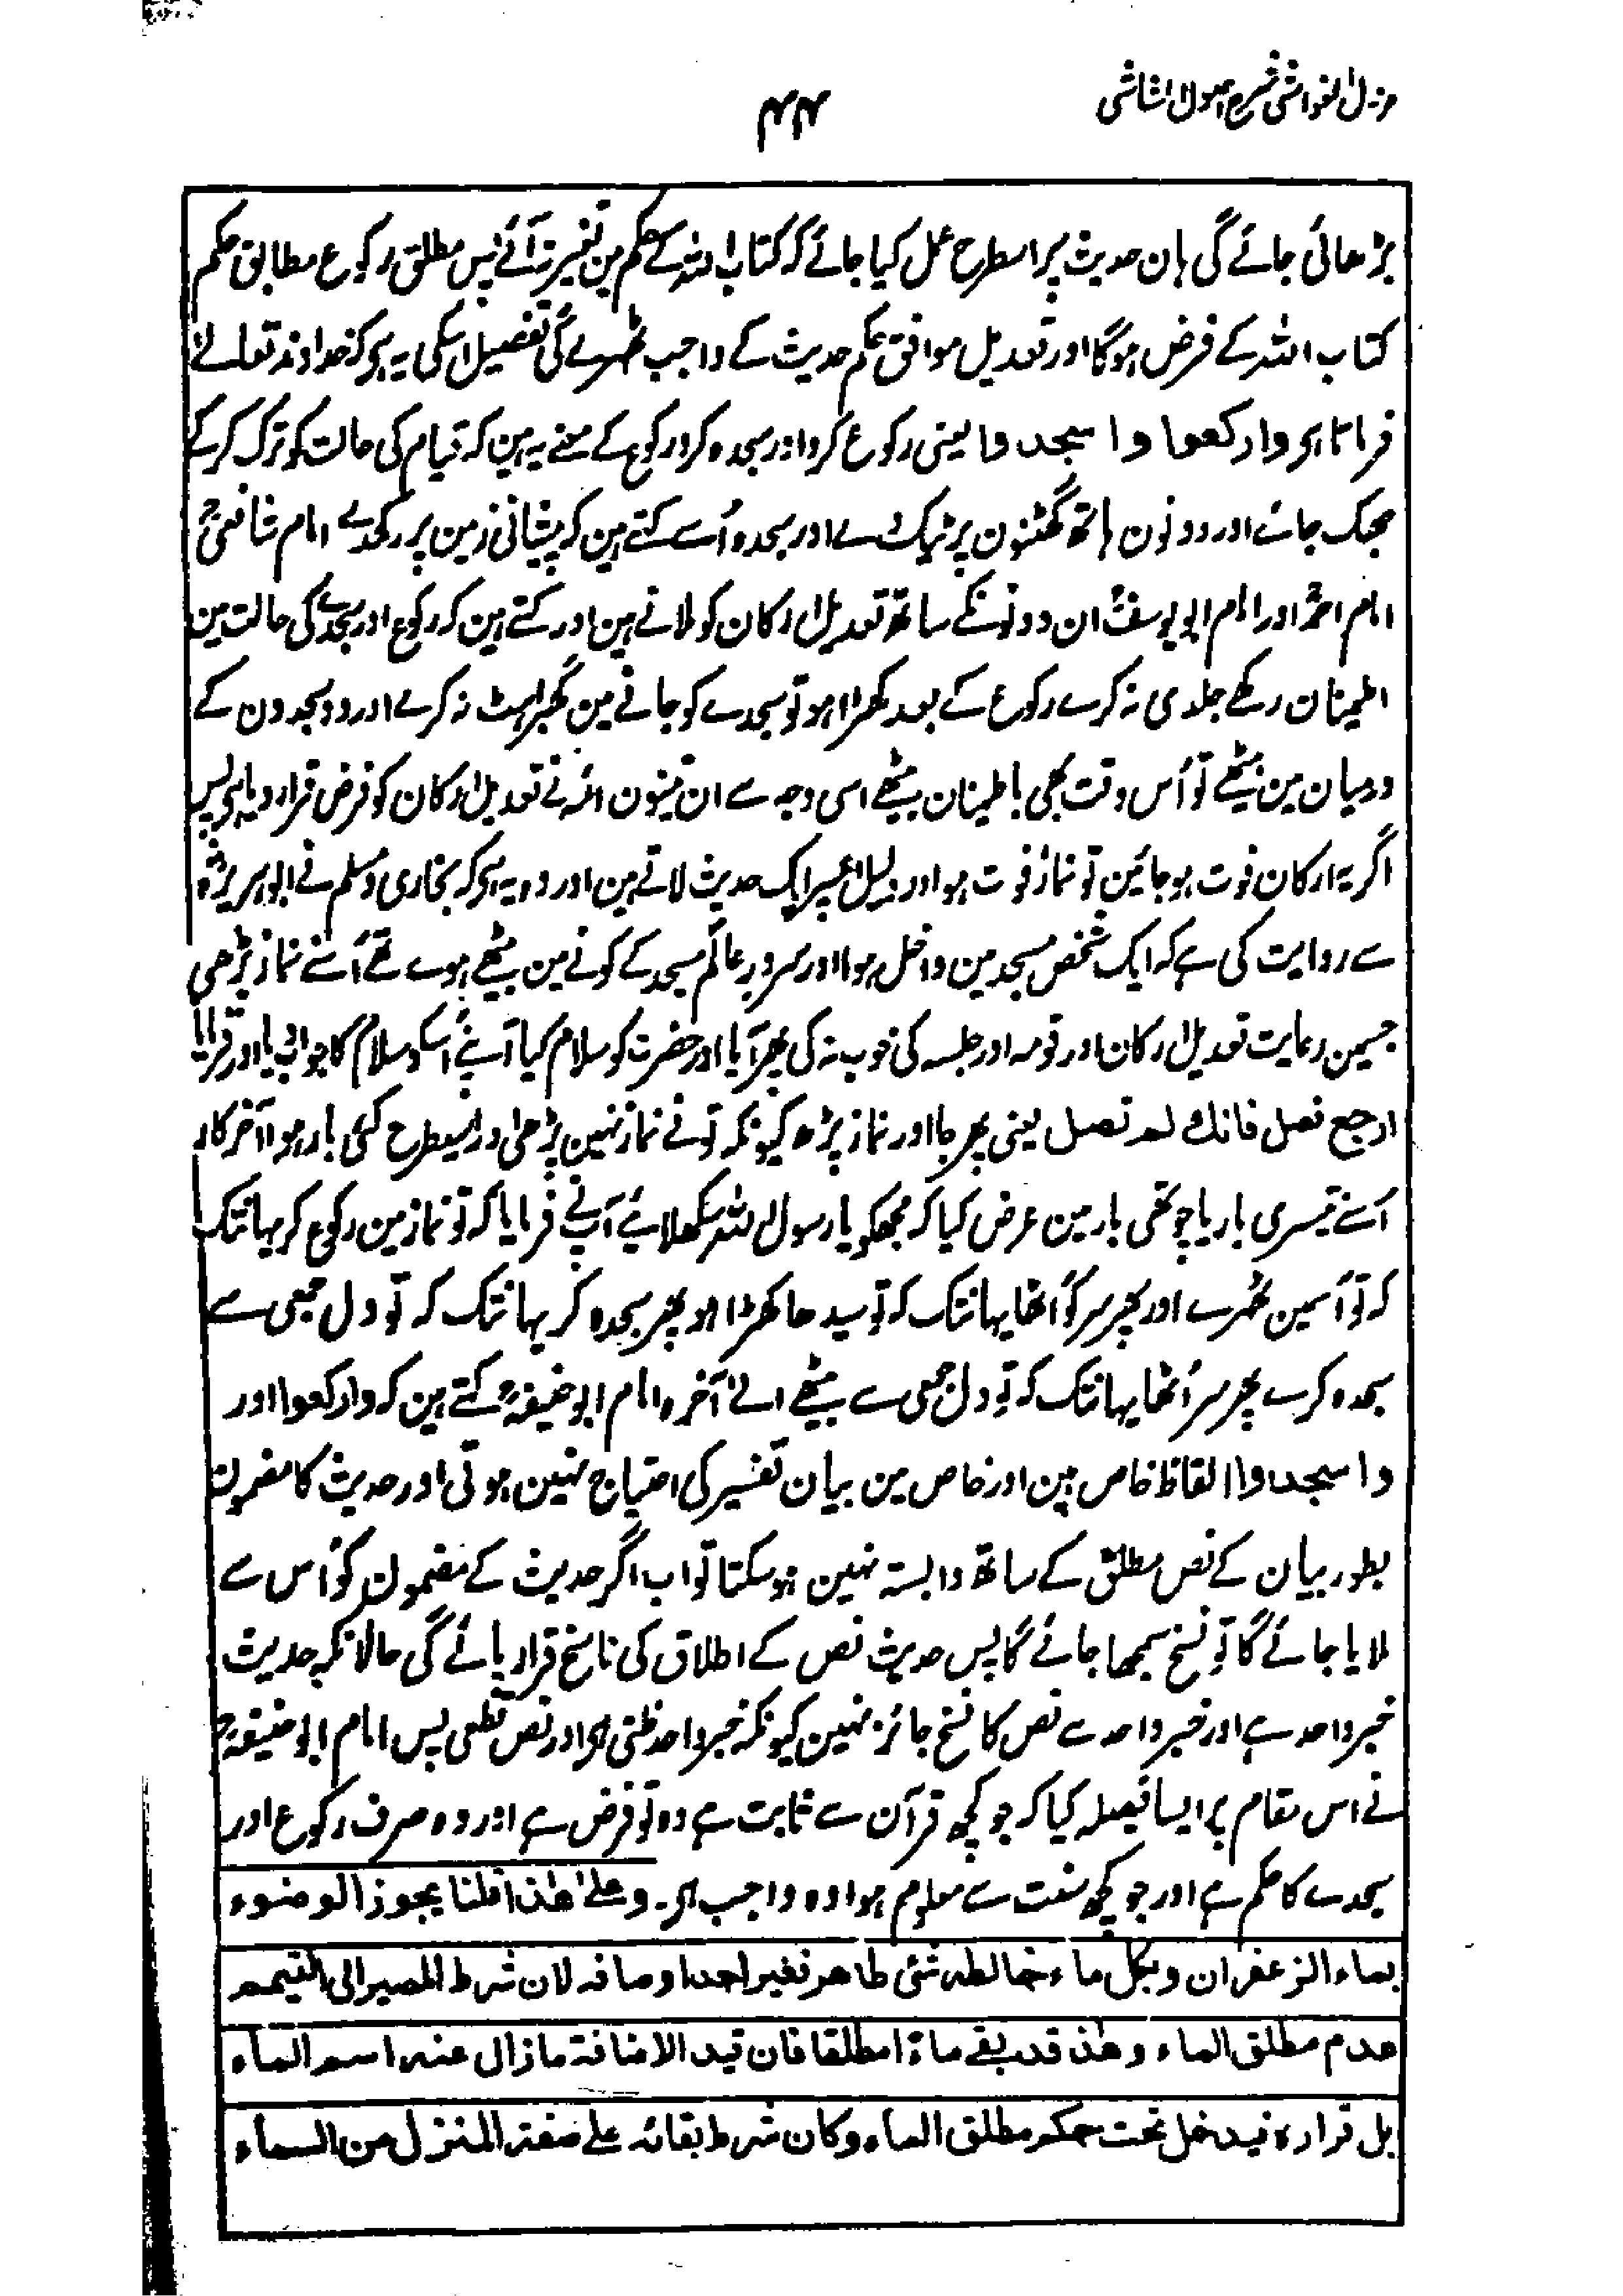 مزیل الغواشی شرح اصول الشاشی
۴۴
بڑھائی جائے گی ہان حدیث پر اسطرح عمل کیا جائے کہ کتاب اللہ کے حکم مین تغیر نہ آئے پس مطلق رکوع مطابق حکم
کتاب اللہ کے فرض ہوگا اور تعدیل موافق حکم حدیث کے واجب ٹھہرے گی تفصیل اسکی یہ ہی کہ خداوند تعالےٰ
فرماتا ہی وارکعوا واسجدوا یعنی رکوع کرو اور سجدہ کرو رکوع کے معنے یہ ہین کہ قیام کی حالت کو ترک کر کے
جھک جائے اور دونون ہاتھ گھٹنون پر ٹیک دے اور سجدہ اُسے کہتے ہین کہ پیشانی زمین پر رکھدے امام شافعیؒ
امام احمدؒ اور امام ابو یوسفؒ ان دونونکے ساتھ تعدیل ارکان کو ملاتے ہین اور کہتے ہین کہ رکوع اور سجدے کی حالت مین
اطمینان رکھے جلدی نہ کرے رکوع کے بعد کھڑا ہو تو سجدے کو جانے مین گھبراہٹ نہ کرے اور دو سجدون کے
درمیان مین بیٹھے تو اُس وقت بھی باطمینان بیٹھے اسی وجہ سے ان تینون ائمہ نے تعدیل ارکان کو فرض قرار دیا ہی پس
اگر یہ ارکان فوت ہو جائین تو نماز فوت ہو اور دلیل اسپر ایک حدیث لاتے ہین اور وہ یہ ہی کہ بخاری و مسلم نے ابو ہریرہؓ
سے روایت کی ہے کہ ایک شخص مسجد مین داخل ہوا اور سرور عالم مسجد کے کونے مین بیٹھے ہوے تھے اُسنے نماز پڑھی
جسمین رعایت تعدیل ارکان اور قومہ اور جلسہ کی خوب نہ کی پھر آیا اور حضرت کو سلام کیا آپنے اسکو سلام کا جواب دیا اور فرمایا
ارجع فصل فانك لم تصل یعنی پھر جا اور نماز پڑھ کیونکہ تونے نماز نہین پڑھی اور اسیطرح کئی بار ہوا آخر کار
اُسنے تیسری بار یا چوتھی بار مین عرض کیا کہ مجھکو یا رسول اللہ سکھلائیے آپنے فرمایا کہ تو نماز مین رکوع کر یہانتک
کہ تو اُسمین ٹھہرے اور پھر سر کو اُٹھا یہانتک کہ تو سیدھا کھڑا ہو پھر سجدہ کر یہانتک کہ تو دل جمعی سے
سجدہ کرے پھر سر اُٹھا یہانتک کہ تو دل جمعی سے بیٹھے الےٰ آخرہ امام ابو حنیفہؒ کہتے ہین کہ وارکعوا اور
واسجدوا الفاظ خاص ہین اور خاص مین بیان تفسیر کی احتیاج نہین ہوتی اور حدیث کا مضمون
بطور بیان کے نص مطلق کے ساتھ وابستہ نہین ہو سکتا تو اب اگر حدیث کے مضمون کو اُس سے
ملایا جائے گا تو نسخ سمجھا جائے گا پس حدیث نص کے اطلاق کی ناسخ قرار پائے گی حالانکہ حدیث
خبر واحد ہے اور خبر واحد سے نص کا نسخ جائز نہین کیونکہ خبر واحد ظنی ہی اور نص قطعی پس امام ابو حنیفہؒ
نے اس مقام پر ایسا فیصلہ کیا کہ جو کچھ قرآن سے ثابت ہے وہ تو فرض ہے اور وہ صرف رکوع اور
سجدے کا حکم ہے اور جو کچھ سنت سے معلوم ہوا وہ واجب ہی۔ وعلیٰ هٰذا قلنا یجوز الوضوء
بماء الزعفران وبکل ماء خالطه شئی طاهر فغیر احد اوصافه لان شرط المصیر الی التیمم
عدم مطلق الماء وهٰذ قد بقے ماءً امطلقا فان قید الاضافة مازال عنه اسم الماء
بل قراره فیدخل تحت حکم مطلق الماء وکان شرط بقائه علے صفة المنزل من السماء